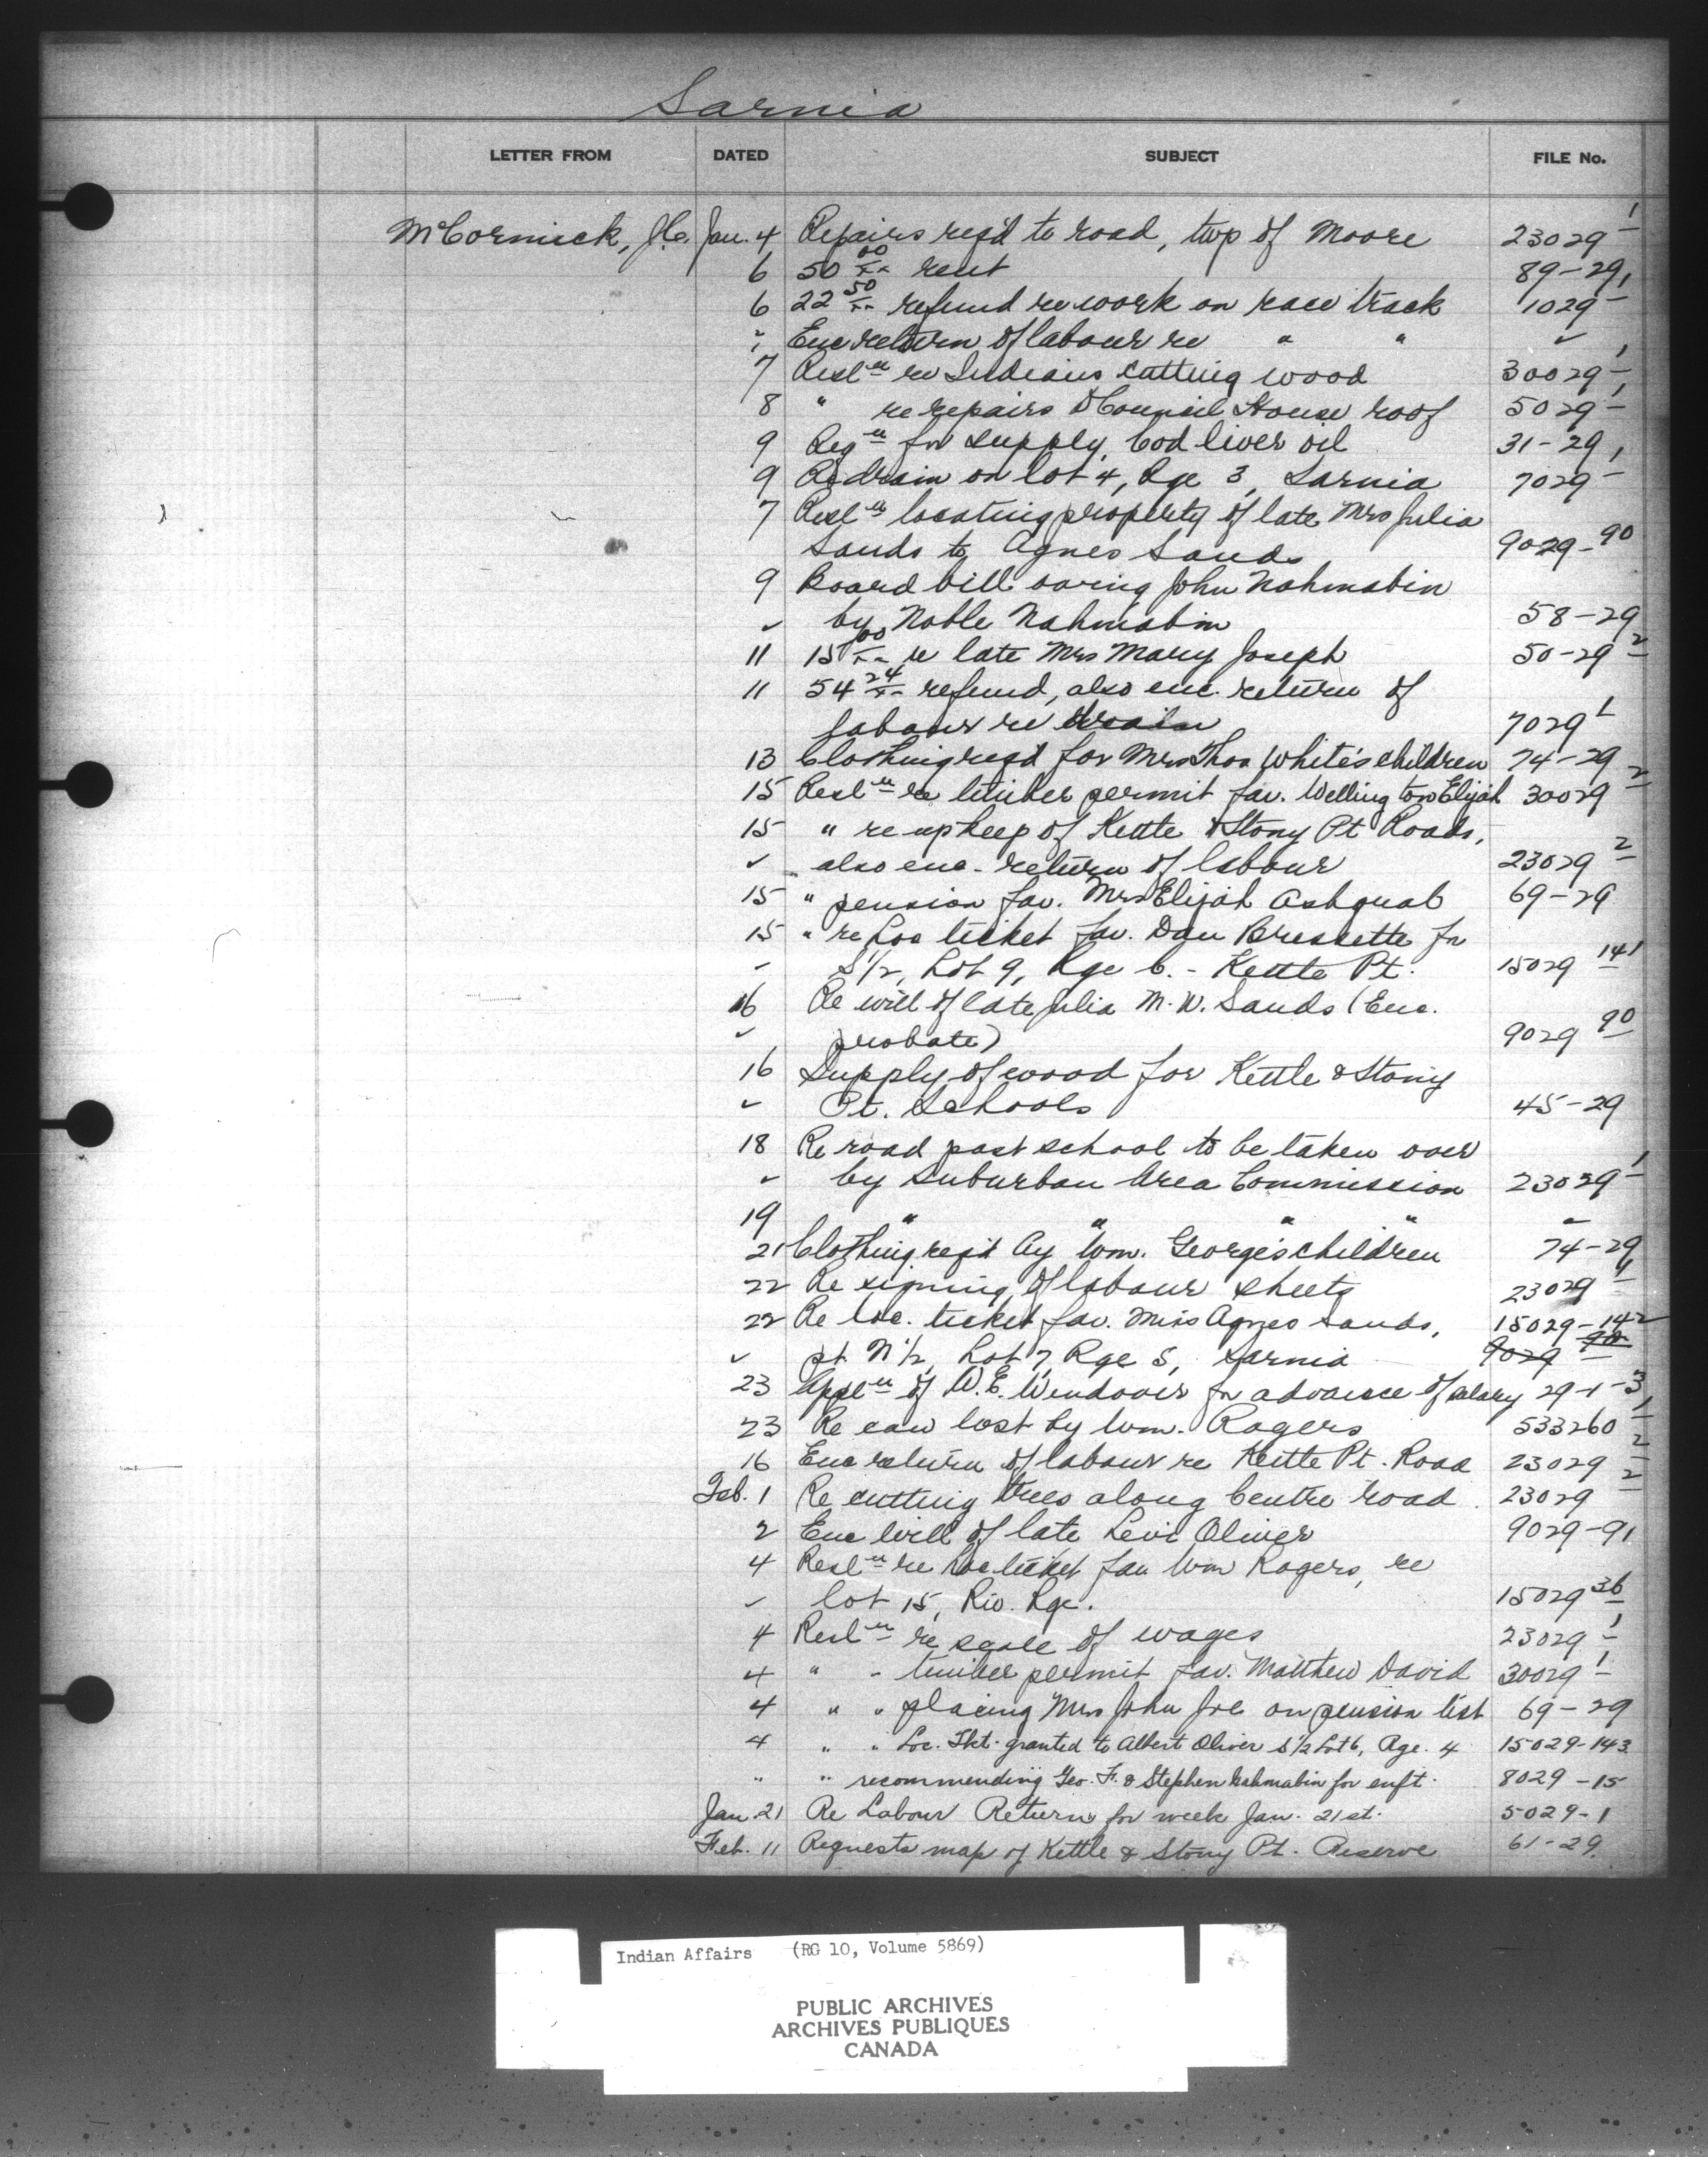 Sarnia
LETTER FROM DATED SUBJECT FILE No.
McCormick, J.C. Jan. 4 Repairs reqd to road, twp of Moore 23029-1
6 50 00/xx rent 89-29
6 22 50/xx refund re work on race track 1029-1
" Enc return of labour re " " ✓
7 Resl'n re Indians cutting wood 30029-1
8 " re repairs Council House roof 5029-1
9 Reqn for supply, Cod liver oil 31-29
9 Re drain on lot 4, Rge 3, Sarnia 7029-1
7 Resl'n locating property of late Mrs Julia
Sands to Agnes Sands 9029-90
9 Board bill owing John Nahmabin
✓ by Noble Nahmabin 58-29
11 15 00/xx re late Mrs Mary Joseph 50-29-2
11 54 24/xx refund, also enc. return of
labour re drain 7029-1
13 Clothing reqd for Mrs Thos White's children 74-29
15 Resl'n re timber permit fav. Wellington Elijah 30029-2
15 " re upkeep of Kettle & Stony Pt Roads,
✓ also enc. return of labour 23029-2
15 " pension fav. Mrs Elijah Ashquab 69-29
15 " re Loc ticket fav. Dan Bressette for
✓ S 1/2, Lot 9, Rge 6. - Kettle Pt. 15029 141
16 Re will of late Julia M. W. Sands (Enc.
✓ probate) 9029 90
16 Supply of wood for Kettle & Stony
✓ Pt. Schools 45-29
18 Re road past school to be taken over
✓ by Suburban Area Commission 23029-1
19 " " " " "
21 Clothing reqd by Wm. George's children 74-29
22 Re signing of labour sheets 23029-1
22 Re loc. ticket fav. Miss Agnes Sands, 15029-142
✓ pt N 1/2, Lot 7, Rge 5, Sarnia 9029 90
23 Appl'n of W. E. Wendover for advance of salary 29-1-3
23 Re cow lost by Wm. Rogers 533260-1
16 Enc return of labour re Kettle Pt. Road 23029-2
Feb. 1 Re cutting trees along Centre road 23029-2
2 Enc will of late Levi Oliver 9029-91
4 Resl'n re loc ticket fav Wm Rogers, re
✓ lot 15, Riv. Rge. 15029 36
4 Resl'n re scale of wages 23029-1
4 " " timber permit fav. Matthew David 30029-1
4 " " placing Mrs John Joe on pension list 69-29
4 " " Loc. Tkt. granted to Albert Oliver S 1/2 Lot 6, Rge. 4 15029-143
" " recommending Geo. F. & Stephen Nahmabin for enft. 8029-15
Jan 21 Re Labour Return for week Jan. 21st. 5029-1
Feb. 11 Requests map of Kettle & Stony Pt. Reserve 61-29
Indian Affairs (RG 10, Volume 5869)
PUBLIC ARCHIVES
ARCHIVES PUBLIQUES
CANADA